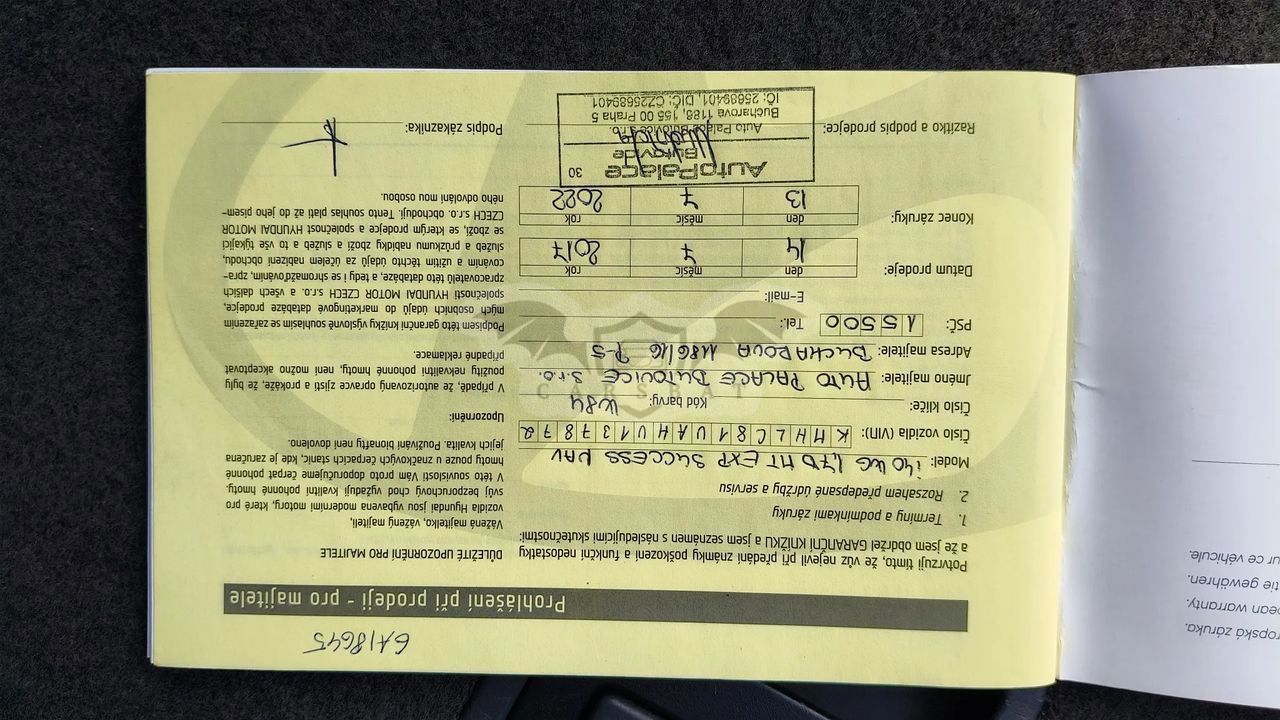 6A18645
Prohlášení při prodeji - pro majitele
Potvrzuji tímto, že vůz nejevil při předání známky poškození a funkční nedostatky
a že jsem obdržel GARANČNÍ KNÍŽKU a jsem seznámen s následujícími skutečnostmi:
1. Termíny a podmínkami záruky
2. Rozsahem předepsané údržby a servisu
Model: i40 WG 1,7D MT EXP SUCCESS NAV
Číslo vozidla (VIN): KMHLC81UAHU137872
Číslo klíče: Kód barvy: W84
Jméno majitele: AUTO PALACE BUTOVICE s.r.o.
Adresa majitele: BUCHAROVA 1186/16 P-5
PSČ: 15500 Tel.:
E-mail:
Datum prodeje: 14 7 2017
den měsíc rok
Konec záruky: 13 7 2022
den měsíc rok
Razítko a podpis prodejce:
AutoPalace
Butovice 30
Auto Palace Butovice s.r.o.
Bucharova 1186, 155 00 Praha 5
IČ: 25689401, DIČ: CZ25689401
DŮLEŽITÉ UPOZORNĚNÍ PRO MAJITELE
Vážená majitelko, vážený majiteli,
vozidla Hyundai jsou vybavena moderními motory, které pro
svůj bezporuchový chod vyžadují kvalitní pohonné hmoty.
V této souvislosti Vám proto doporučujeme čerpat pohonné
hmoty pouze u značkových čerpacích stanic, kde je zaručena
jejich kvalita. Používání bionafty není dovoleno.
Upozornění:
V případě, že autorizovaný opravce zjistí a prokáže, že byly
použity nekvalitní pohonné hmoty, není možno akceptovat
případné reklamace.
Podpisem této garanční knížky výslovně souhlasím se zařazením
mých osobních údajů do marketingové databáze prodejce,
společnosti HYUNDAI MOTOR CZECH s.r.o. a všech dalších
zpracovatelů této databáze, a tedy i se shromažďováním, zpra-
cováním a užitím těchto údajů za účelem nabízení obchodu,
služeb a průzkumu nabídky zboží a služeb a to vše týkající
se zboží, se kterým prodejce a společnost HYUNDAI MOTOR
CZECH s.r.o. obchodují. Tento souhlas platí až do jeho písem-
ného odvolání mou osobou.
Podpis zákazníka:
CARSBAT
opská záruka.
pean warranty.
tie gewähren.
ur ce véhicule.